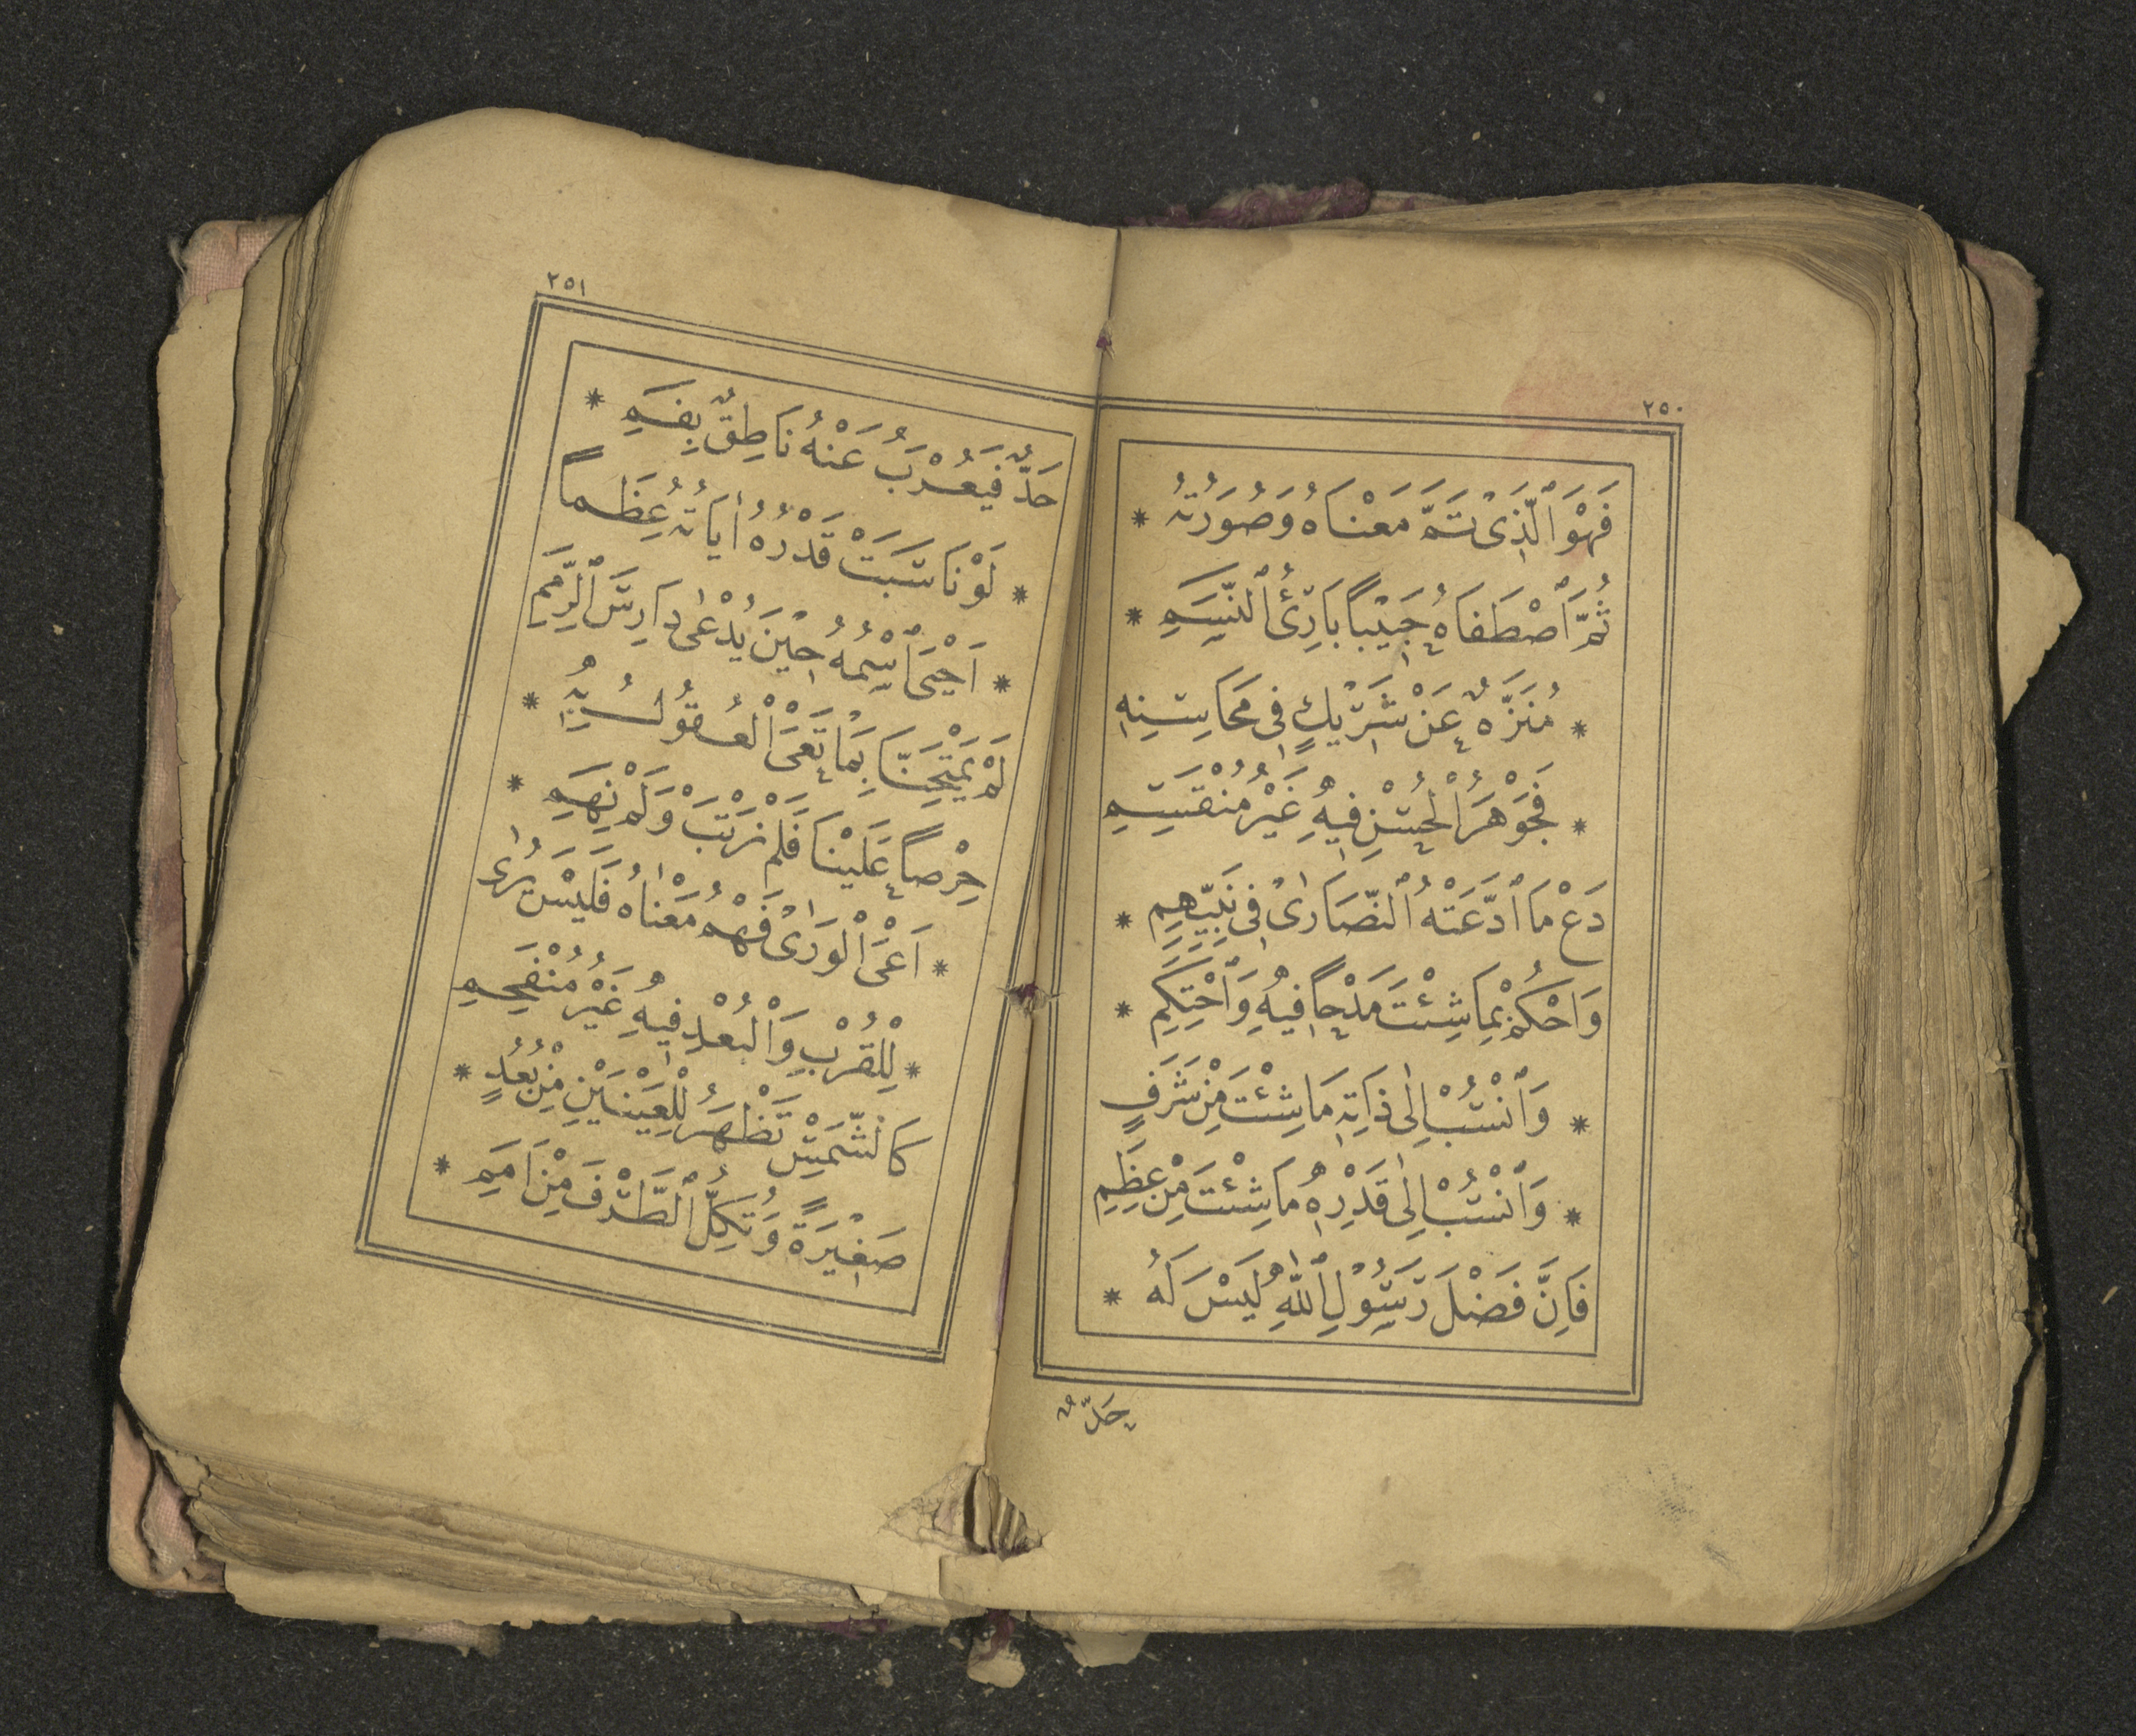 ٢٥٠
فَهْوَ ٱلَّذِىْ تَمَّ مَعْنَاهُ وَصُورَتُهُ *
ثُمَّ ٱصْطَفَاهُ حَبِيْبًا بَارِئُ ٱلنَّسَمِ *
* مُنَزَّهٌ عَنْ شَرِيْكٍ فِى مَحَاسِنِهِ
* فَجَوْهَرُ ٱلْحُسْنِ فِيهِ غَيْرُ مُنْقَسِمِ
دَعْ مَا ٱدَّعَتْهُ ٱلنَّصَارٰىْ فِى نَبِيِّهِمِ *
وَٱحْكُمْ بِمَا شِئْتَ مَدْحًا فِيهِ وَٱحْتَكِمِ *
* وَٱنْسُبْ اِلٰى ذَاتِهِ مَا شِئْتَ مِنْ شَرَفٍ
* وَٱنْسُبْ اِلٰى قَدْرِهِ مَا شِئْتَ مِنْ عِظَمِ
فَاِنَّ فَضْلَ رَسُوْلِ ٱللّٰهِ لَيْسَ لَهُ *
حَدٌّ
٢٥١
حَدٌّ فَيُعْرِبَ عَنْهُ نَاطِقٌ بِفَمِ *
* لَوْ نَاسَبَتْ قَدْرَهُ اٰيَاتُهُ عِظَمًا
* اَحْيَى ٱسْمُهُ حِيْنَ يُدْعٰى دَارِسَ ٱلرِّمَمِ
لَمْ يَمْتَحِنَّا بِمَا تَعْىَ ٱلْعُقُولُ بِهِ *
حِرْصًا عَلَيْنَا فَلَمْ نَرْتَبْ وَلَمْ نَهِمِ *
* اَعْىَ ٱلْوَرٰىْ فَهْمُ مَعْنَاهُ فَلَيْسَ يُرٰى
* لِلْقُرْبِ وَٱلْبُعْدِ فِيهِ غَيْرُ مُنْفَحِمِ
كَالشَّمْسِ تَظْهَرُ لِلْعَيْنَيْنِ مِنْ بُعُدٍ *
صَغِيْرَةً وَتُكِلُّ ٱلطَّرْفَ مِنْ اَمَمِ *